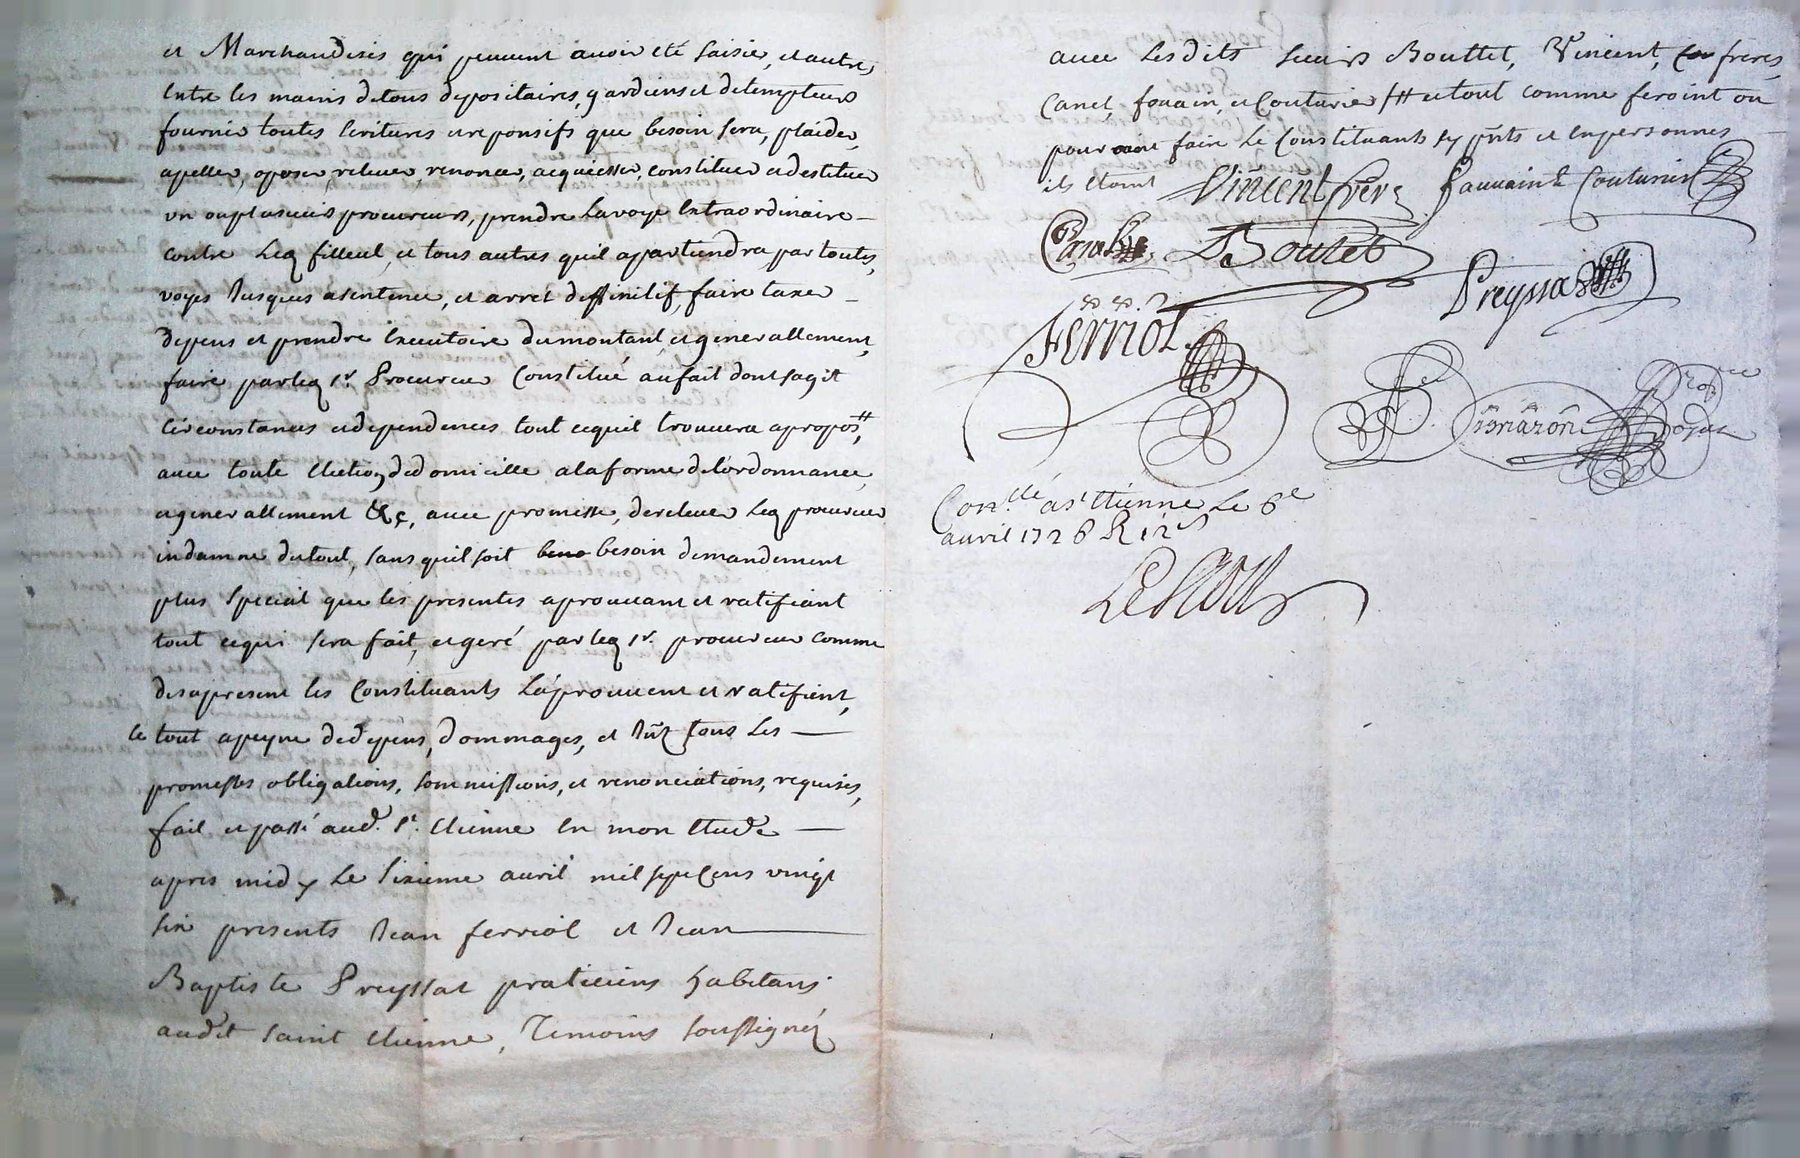 et Marchandises qui peuvent avoir eté saisie, et autre,
Entre les mains detous depositaires, gardiens et detempteurs
fournir toutes Ecritures et reponsifs que besoin sera, plaider,
apeller, oposer, relever, renoncer, acquiesser, constituer et destituer
un ou plusieurs procureurs, prendre La voye Extraordinaire
contre Leq filleul, et tous autres quil apartiendra par toutes,
voyes Jusques asentence, et arret deffinitif, faire taxer
Depens et prendre Executoire dumontant, et generallement,
faire parleq sr. Procureur Constitué aufait dont sagit
Circonstances et dependences tout cequil trouvera apropos #,
avec toute Election dedomicille alaforme delordonnance
et generallement &c, avec promesse, de relever Leq procureur
indamne dutout, sans quil soit besoin demandement
plus special que les presentes aprouvant et ratifiant
tout cequi sera fait, et geré par leq sr. procureur comme
desapresent les Constituants Laprouvent et ratifient,
le tout apeyne dedepens, dommages, et Jnt sous Les
promesses obligations, sommissions, et renonciations, requises,
fait et passé aud. St. Etienne En mon Etude
apres midy Le sixieme avril mil sept Cens vingt
six presents Jean ferriol et Jean
Baptiste Preyssat praticiens habitans
audit saint Etienne, Temoins soussignez
avec Lesdits sieurs Bouttet, Vincent, freres,
Canel, fovain, et Couturier # et tout comme feroint ou
pouroint faire Le Constituants sy pnts et Enpersonnes
ils Etoint Vincent frere Fauvain & Couturier
Boutet
Preyssat
Ferriol
Con.llé a st Etienne Le 6e
avril 1726 R 12 s